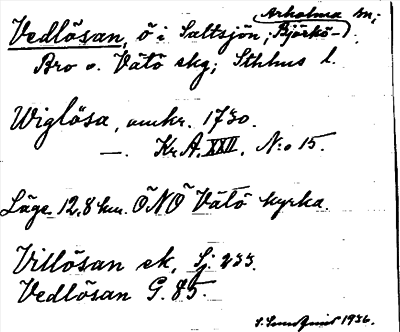 Arholma sn;
Vedlösan, ö i Saltsjön; Björkö-
Bro o. Vätö skg; Sthlms l.
Wiglösa, omkr. 1730.
— Kr.A. XXII. N:o 15.
Läge. 12,8 km. ÖNÖ Vätö kyrka.
Villösan ek. Sj 233.
Vedlösan G. 85.
1936.